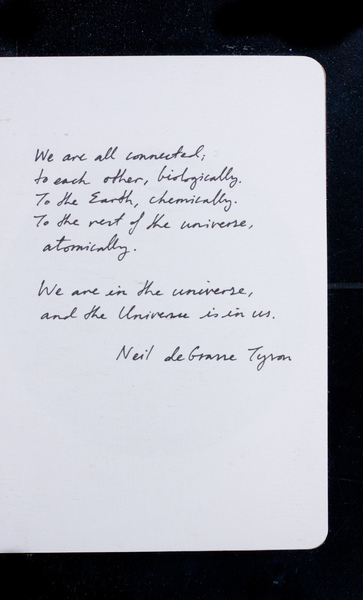 We are all connected;
to each other, biologically.
To the Earth, chemically.
To the rest of the universe,
atomically.
We are in the universe,
and the Universe is in us.
Neil deGrasse Tyson